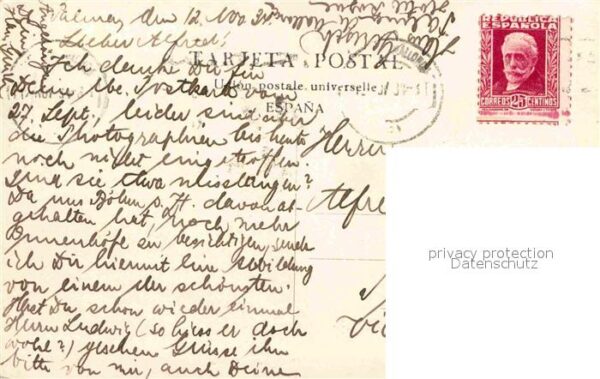 Palma, den 12. Nov 34
Lieber Alfred!
TARJETA POSTAL
Union postale universelle
ESPAÑA
REPUBLICA
ESPAÑOLA
CORREOS 25 CENTIMOS
Ich danke Dir für
Deine lbe. Postkarte vom
27. Sept., leider sind aber
die Photographien bis heute
noch nicht eingetroffen.
Sind sie etwa misslungen?
Da uns Böhm s. Zt. davon ab-
gehalten hat, noch mehr
Innenhöfe zu besichtigen, sende
ich Dir hiermit eine Abbildung
von einem der schönsten.
Hast Du schon wieder einmal
Herrn Ludwig (so hiess er doch
wohl?) gesehen? Grüsse ihn
bitte von mir, auch Deine
Herrn
Alfre
privacy protection
Datenschutz